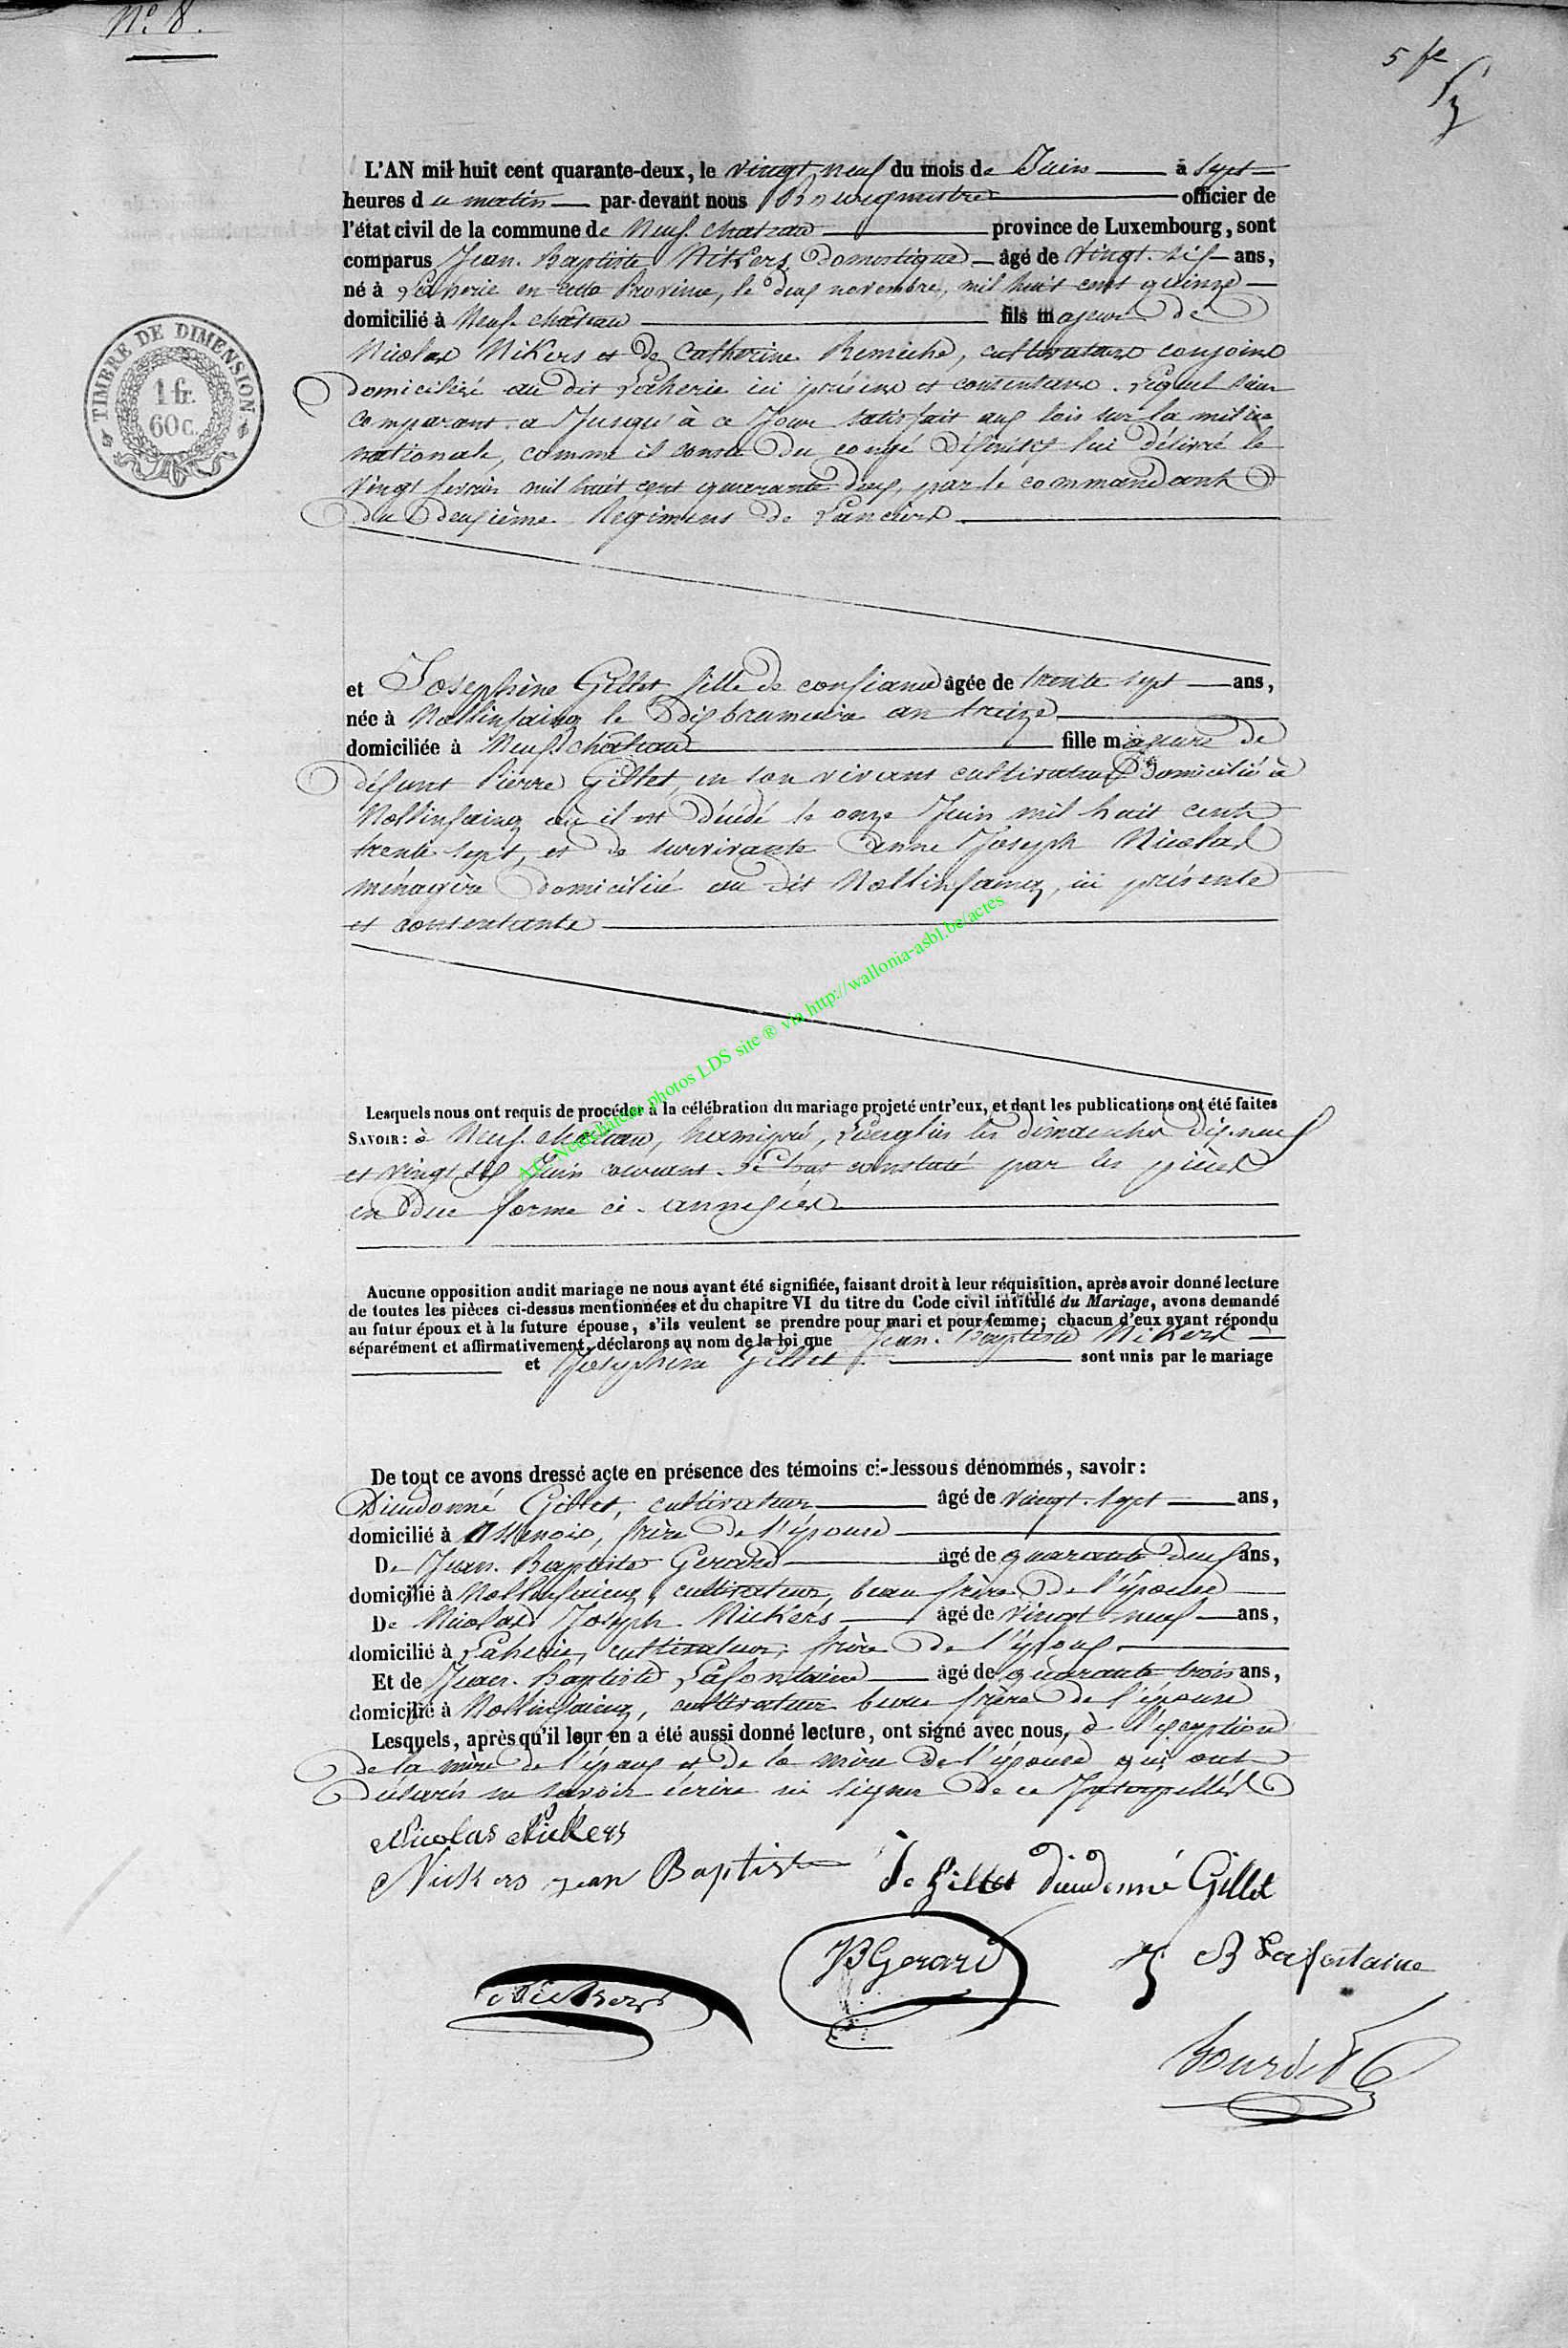 N.º 8.
5 fe
L'AN mil huit cent quarante-deux, le vingt neuf du mois de Juin à sept
heures du matin par-devant nous Bourgmestre officier de
l'état civil de la commune de Neufchateau province de Luxembourg, sont
comparus Jean-Baptiste Nikers, Domestique âgé de vingt-six ans,
né à Laherie en cette Province, le deux novembre, mil huit cent quinze
domicilié à Neufchateau fils majeur de
Nicolas Nikers et de Catherine Remiche, cultivateurs conjoins
domiciliés au dit Laherie ici présens et consentans. Lequel Sieur
Comparant a Jusqu'à ce Jour satisfait aux lois sur la milice
nationale, comme il conste du congé définitif lui délivré le
vingt février mil huit cent quarante deux, par le commandant
du deuxième Régiment de Lanciers
TIMBRE DE DIMENSION
1 fr.
60 c.
et Josephine Gillet fille de confiance âgée de trente sept ans,
née à Nollinfaing le dix brumaire an treize
domiciliée à Neufchateau fille majeure de
défunt Pierre Gillet, en son vivant cultivateur domicilié à
Nollinfaing où il est décédé le onze Juin mil huit cent
trente sept, et de survivante Anne Joseph Nicolas
ménagère domiciliée au dit Nollinfaing, ici présente
et consentante
A.C. Neufchâteau photos LDS site ® via http://wallonia-asbl.be/actes
Lesquels nous ont requis de procéder à la célébration du mariage projeté entr'eux, et dont les publications ont été faites
SAVOIR: à Neufchateau, hamipré, Longlier les dimanches dix-neuf
et vingt six Juin courant. Le tout constaté par les pièces
en due forme ci-annexées
Aucune opposition audit mariage ne nous ayant été signifiée, faisant droit à leur réquisition, après avoir donné lecture
de toutes les pièces ci-dessus mentionnées et du chapitre VI du titre du Code civil intitulé du Mariage, avons demandé
au futur époux et à la future épouse, s'ils veulent se prendre pour mari et pour femme; chacun d'eux ayant répondu
séparément et affirmativement, déclarons au nom de la loi que Jean-Baptiste Nikers
et Josephine Gillet sont unis par le mariage
De tout ce avons dressé acte en présence des témoins ci-dessous dénommés, savoir:
Dieudonné Gillet, cultivateur âgé de vingt-sept ans,
domicilié à Assenois, frère de l'épouse
De Jean-Baptiste Gerard âgé de quarante deux ans,
domicilié à Nollinfaing, cultivateur, beau frère de l'épouse
De Nicolas Joseph Nickers âgé de vingt neuf ans,
domicilié à Laherie, cultivateur, frère de l'époux
Et de Jean-Baptiste Lafontaine âgé de quarante trois ans,
domicilié à Nollinfaing, cultivateur beau frère de l'épouse
Lesquels, après qu'il leur en a été aussi donné lecture, ont signé avec nous, à l'exception
de la mère de l'époux et de la mère de l'épouse qui ont
déclarés ne savoir écrire ni signer de ce Interpellés
Nicolas Nickers
Nickers jean Baptiste J. Gillet dieudonné Gillet
Nickers JBGerard J B Lafontaine